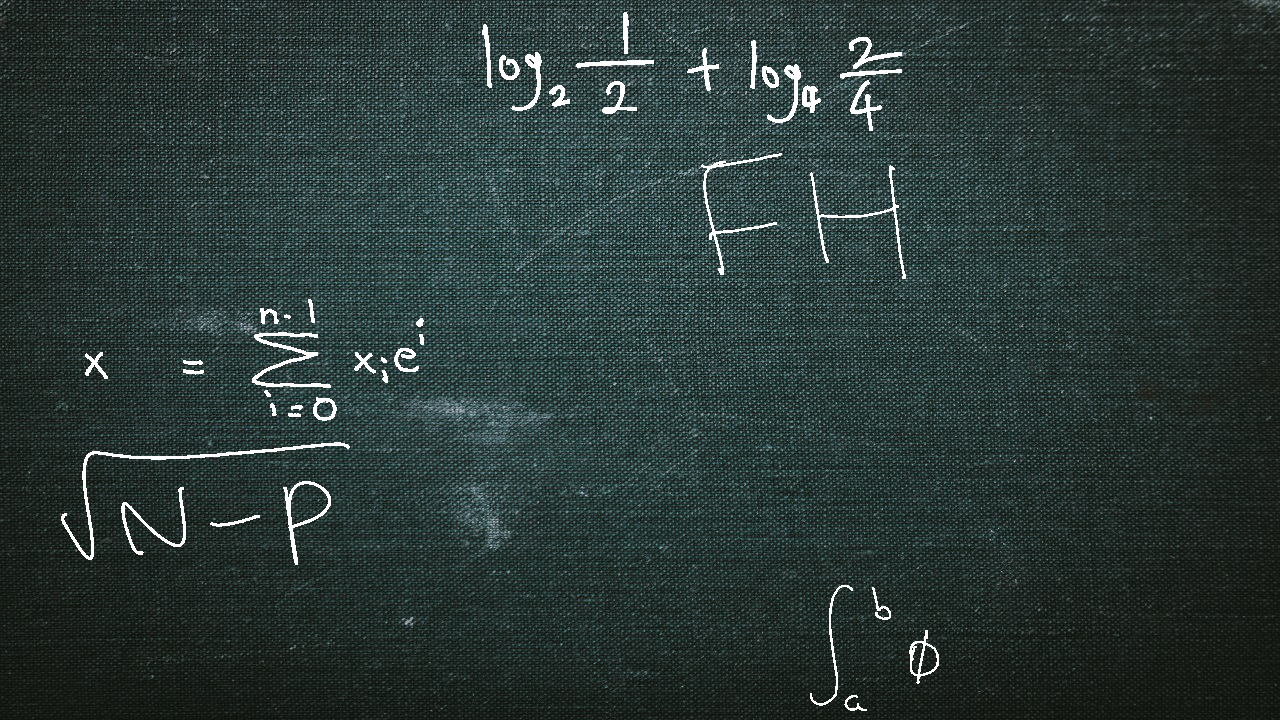 log₂ 1/2 + log₄ 2/4
FH
x = ∑_{i=0}^{n-1} xᵢeⁱ
√(N-P)
∫_a^b ϕ